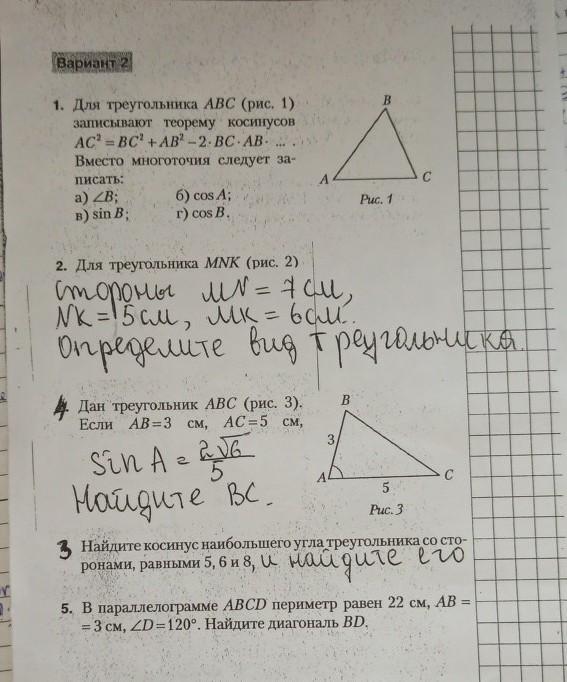 Вариант 2
1. Для треугольника ABC (рис. 1)
записывают теорему косинусов
AC² = BC² + AB² − 2 · BC · AB · ... .
Вместо многоточия следует за-
писать:
а) ∠B; б) cos A;
в) sin B; г) cos B.
B
A
C
Рис. 1
2. Для треугольника MNK (рис. 2)
Стороны MN = 7 см,
NK = 5 см, MK = 6 см.
Определите вид треугольника.
4. Дан треугольник ABC (рис. 3).
Если AB = 3 см, AC = 5 см,
sin A = 2√6/5
Найдите BC.
B
3
A
5
C
Рис. 3
3 Найдите косинус наибольшего угла треугольника со сто-
ронами, равными 5, 6 и 8, и найдите его
5. В параллелограмме ABCD периметр равен 22 см, AB =
= 3 см, ∠D = 120°. Найдите диагональ BD.